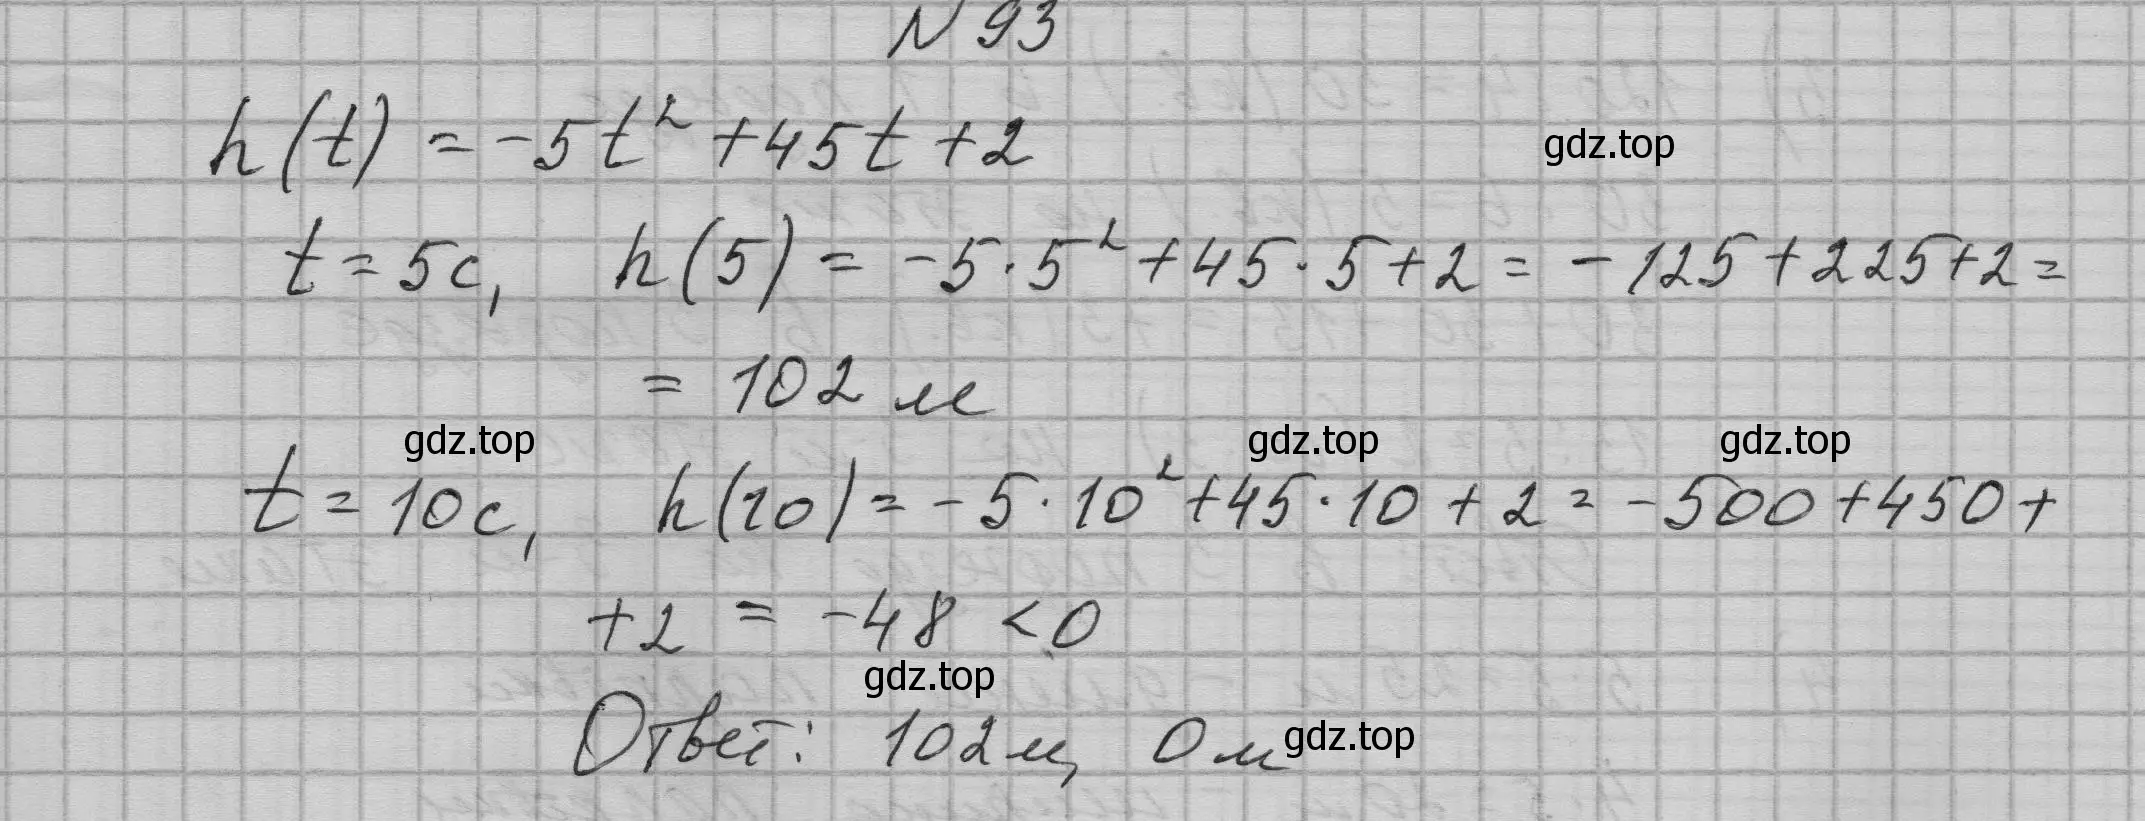 N 93
h(t) = -5t² + 45t + 2
gdz.top
t = 5c, h(5) = -5·5² + 45·5 + 2 = -125 + 225 + 2 =
= 102 м
gdz.top gdz.top gdz.top
t = 10c, h(10) = -5·10² + 45·10 + 2 = -500 + 450 +
+2 = -48 < 0
gdz.top
Ответ: 102м, 0м
gdz.top